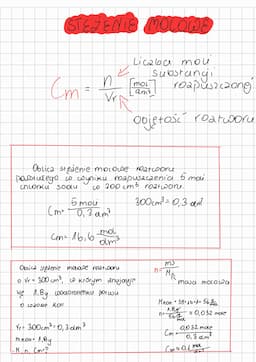 STĘŻENIE MOLOWE
Liczba moli
substancji
rozpuszczonej
Cm = n / Vr [mol/dm³]
objętość roztworu
Oblicz stężenie molowe roztworu
powstałego w wyniku rozpuszczenia 5 moli
chlorku sodu w 300 cm³ roztworu.
Cm = 5 mol / 0,3 dm³
300cm³ = 0,3 dm³
Cm = 16,6 mol/dm³
Oblicz stężenie molowe roztworu
o Vr = 300 cm³, w którym znajduje
się 1,8g wodorotlenku potasu
o wzorze KOH.
Vr = 300 cm³ = 0,3 dm³
mKOH = 1,8g
Cm?
n = m / M
masa molowa
= 0,032 mol
Cm = 0,032 mol / 0,3 dm³